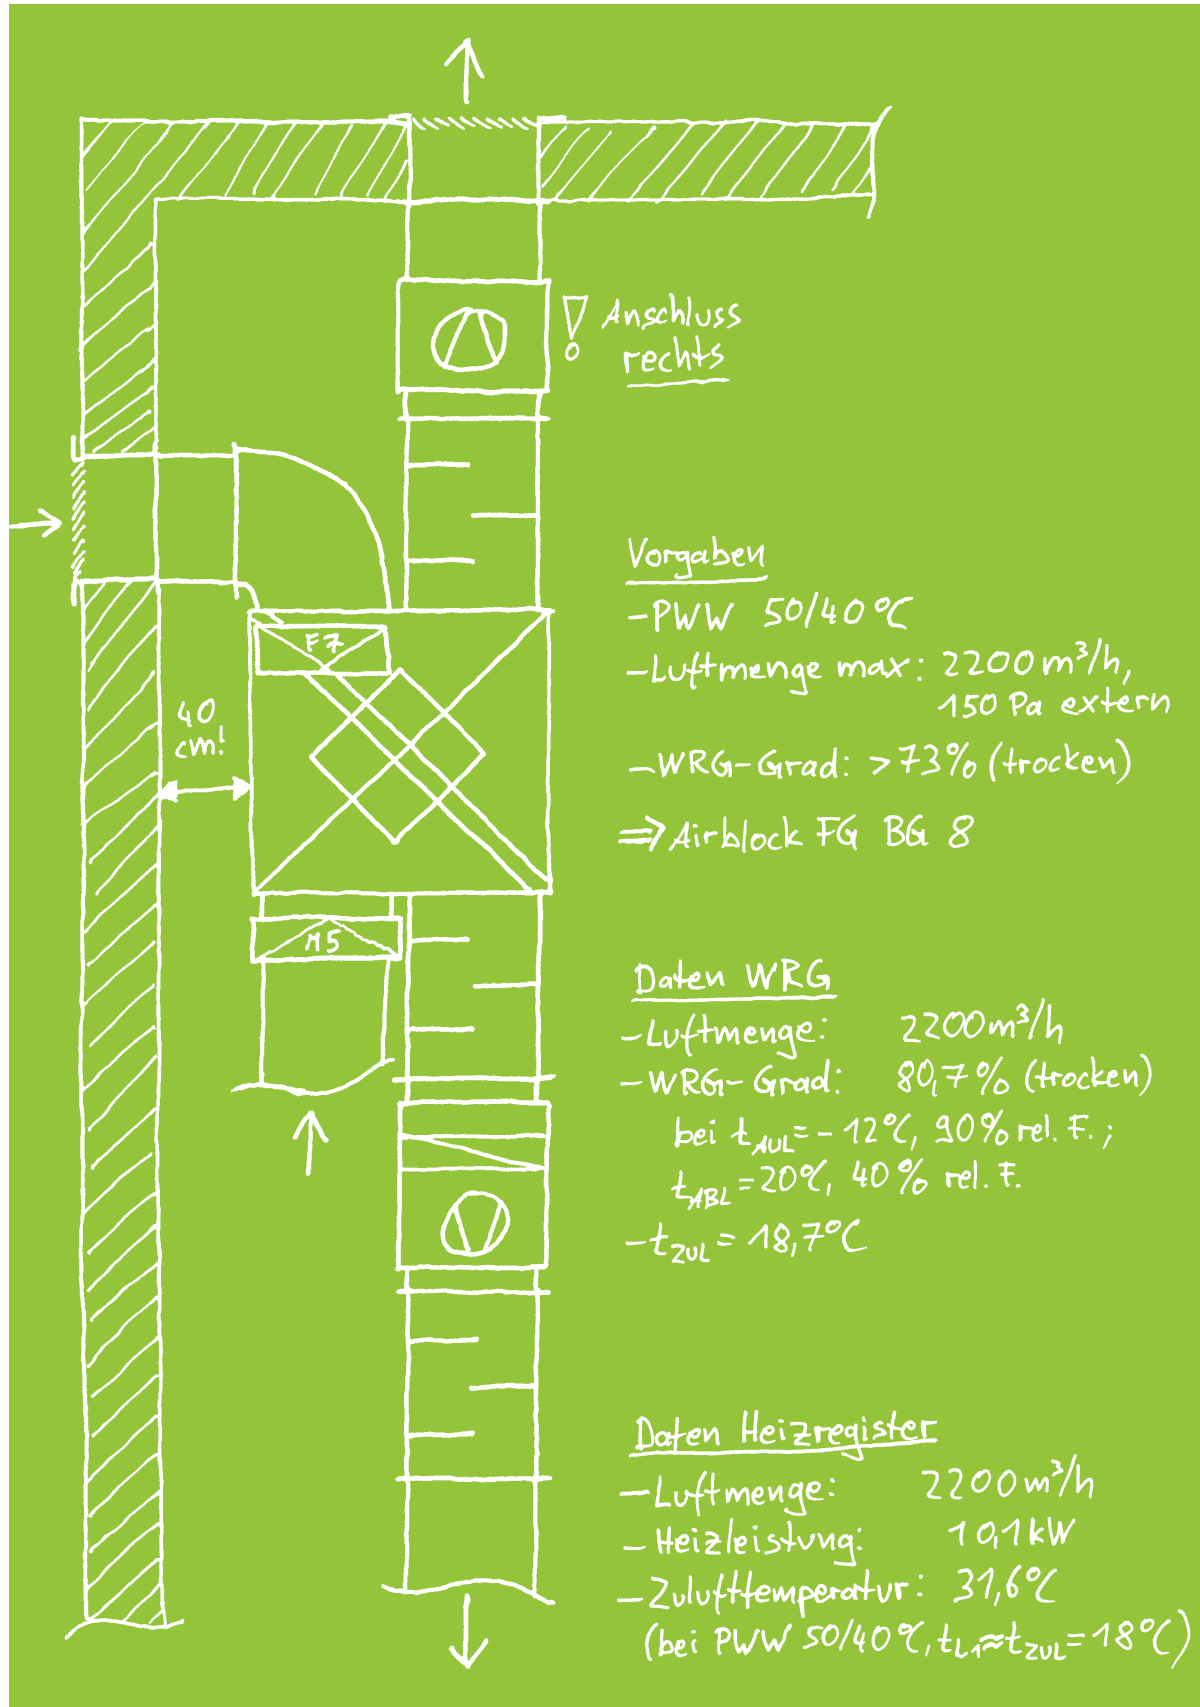 ! Anschluss
rechts
F7
40
cm!
M5
Vorgaben
- PWW 50/40°C
- Luftmenge max: 2200 m³/h,
150 Pa extern
- WRG-Grad: > 73% (trocken)
⇒ Airblock FG BG 8
Daten WRG
- Luftmenge: 2200 m³/h
- WRG-Grad: 80,7% (trocken)
bei t_AUL = -12°C, 90% rel. F. ;
t_ABL = 20°C, 40% rel. F.
- t_ZUL = 18,7°C
Daten Heizregister
- Luftmenge: 2200 m³/h
- Heizleistung: 10,1 kW
- Zulufttemperatur: 31,6°C
(bei PWW 50/40°C, t_L1 ≈ t_ZUL = 18°C)